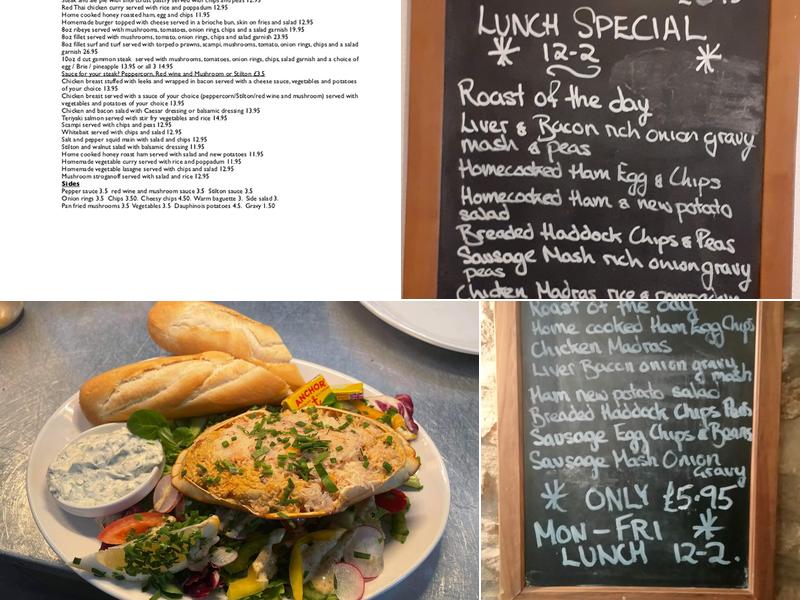 Steak and ale pie with shortcrust pastry served with chips and peas 12.95
Red Thai chicken curry served with rice and poppadum 12.95
Home cooked honey roasted ham, egg and chips 11.95
Homemade burger topped with cheese served in a brioche bun, skin on fries and salad 12.95
8oz ribeye served with mushrooms, tomatoes, onion rings, chips and a salad garnish 19.95
8oz fillet served with mushrooms, tomato, onion rings, chips and salad garnish 23.95
8oz fillet surf and turf served with torpedo prawns, scampi, mushrooms, tomato, onion rings, chips and a salad
garnish 26.95
10oz d cut gammon steak served with mushrooms, tomatoes, onion rings, chips, salad garnish and a choice of
egg / Brie / pineapple 13.95 or all 3 14.95
Sauce for your steak? Peppercorn, Red wine and Mushroom or Stilton £3.5
Chicken breast stuffed with leeks and wrapped in bacon served with a cheese sauce, vegetables and potatoes
of your choice 13.95
Chicken breast served with a sauce of your choice (peppercorn/Stilton/red wine and mushroom) served with
vegetables and potatoes of your choice 13.95
Chicken and bacon salad with Caesar dressing or balsamic dressing 13.95
Teriyaki salmon served with stir fry vegetables and rice 14.95
Scampi served with chips and peas 12.95
Whitebait served with chips and salad 12.95
Salt and pepper squid main with salad and chips 12.95
Stilton and walnut salad with balsamic dressing 11.95
Home cooked honey roast ham served with salad and new potatoes 11.95
Homemade vegetable curry served with rice and poppadum 11.95
Homemade vegetable lasagne served with chips and salad 12.95
Mushroom stroganoff served with salad and rice 12.95
Sides
Pepper sauce 3.5 red wine and mushroom sauce 3.5 Stilton sauce 3.5
Onion rings 3.5 Chips 3.50. Cheesy chips 4.50. Warm baguette 3. Side salad 3.
Pan fried mushrooms 3.5 Vegetables 3.5 Dauphinois potatoes 4.5. Gravy 1.50
LUNCH SPECIAL
12-2
Roast of the day
Liver & Bacon rich onion gravy
mash & peas
Homecooked Ham Egg & Chips
Homecooked Ham & new potato
salad
Breaded Haddock Chips & Peas
Sausage Mash rich onion gravy
peas
Chicken Madras rice &
ANCHOR
Roast of the day
Home cooked Ham Egg Chips
Chicken Madras
Liver Bacon onion gravy
& mash
Ham new potato salad
Breaded Haddock Chips Peas
Sausage Egg Chips & Beans
Sausage Mash Onion
Gravy
ONLY £5.95
MON-FRI
LUNCH 12-2.